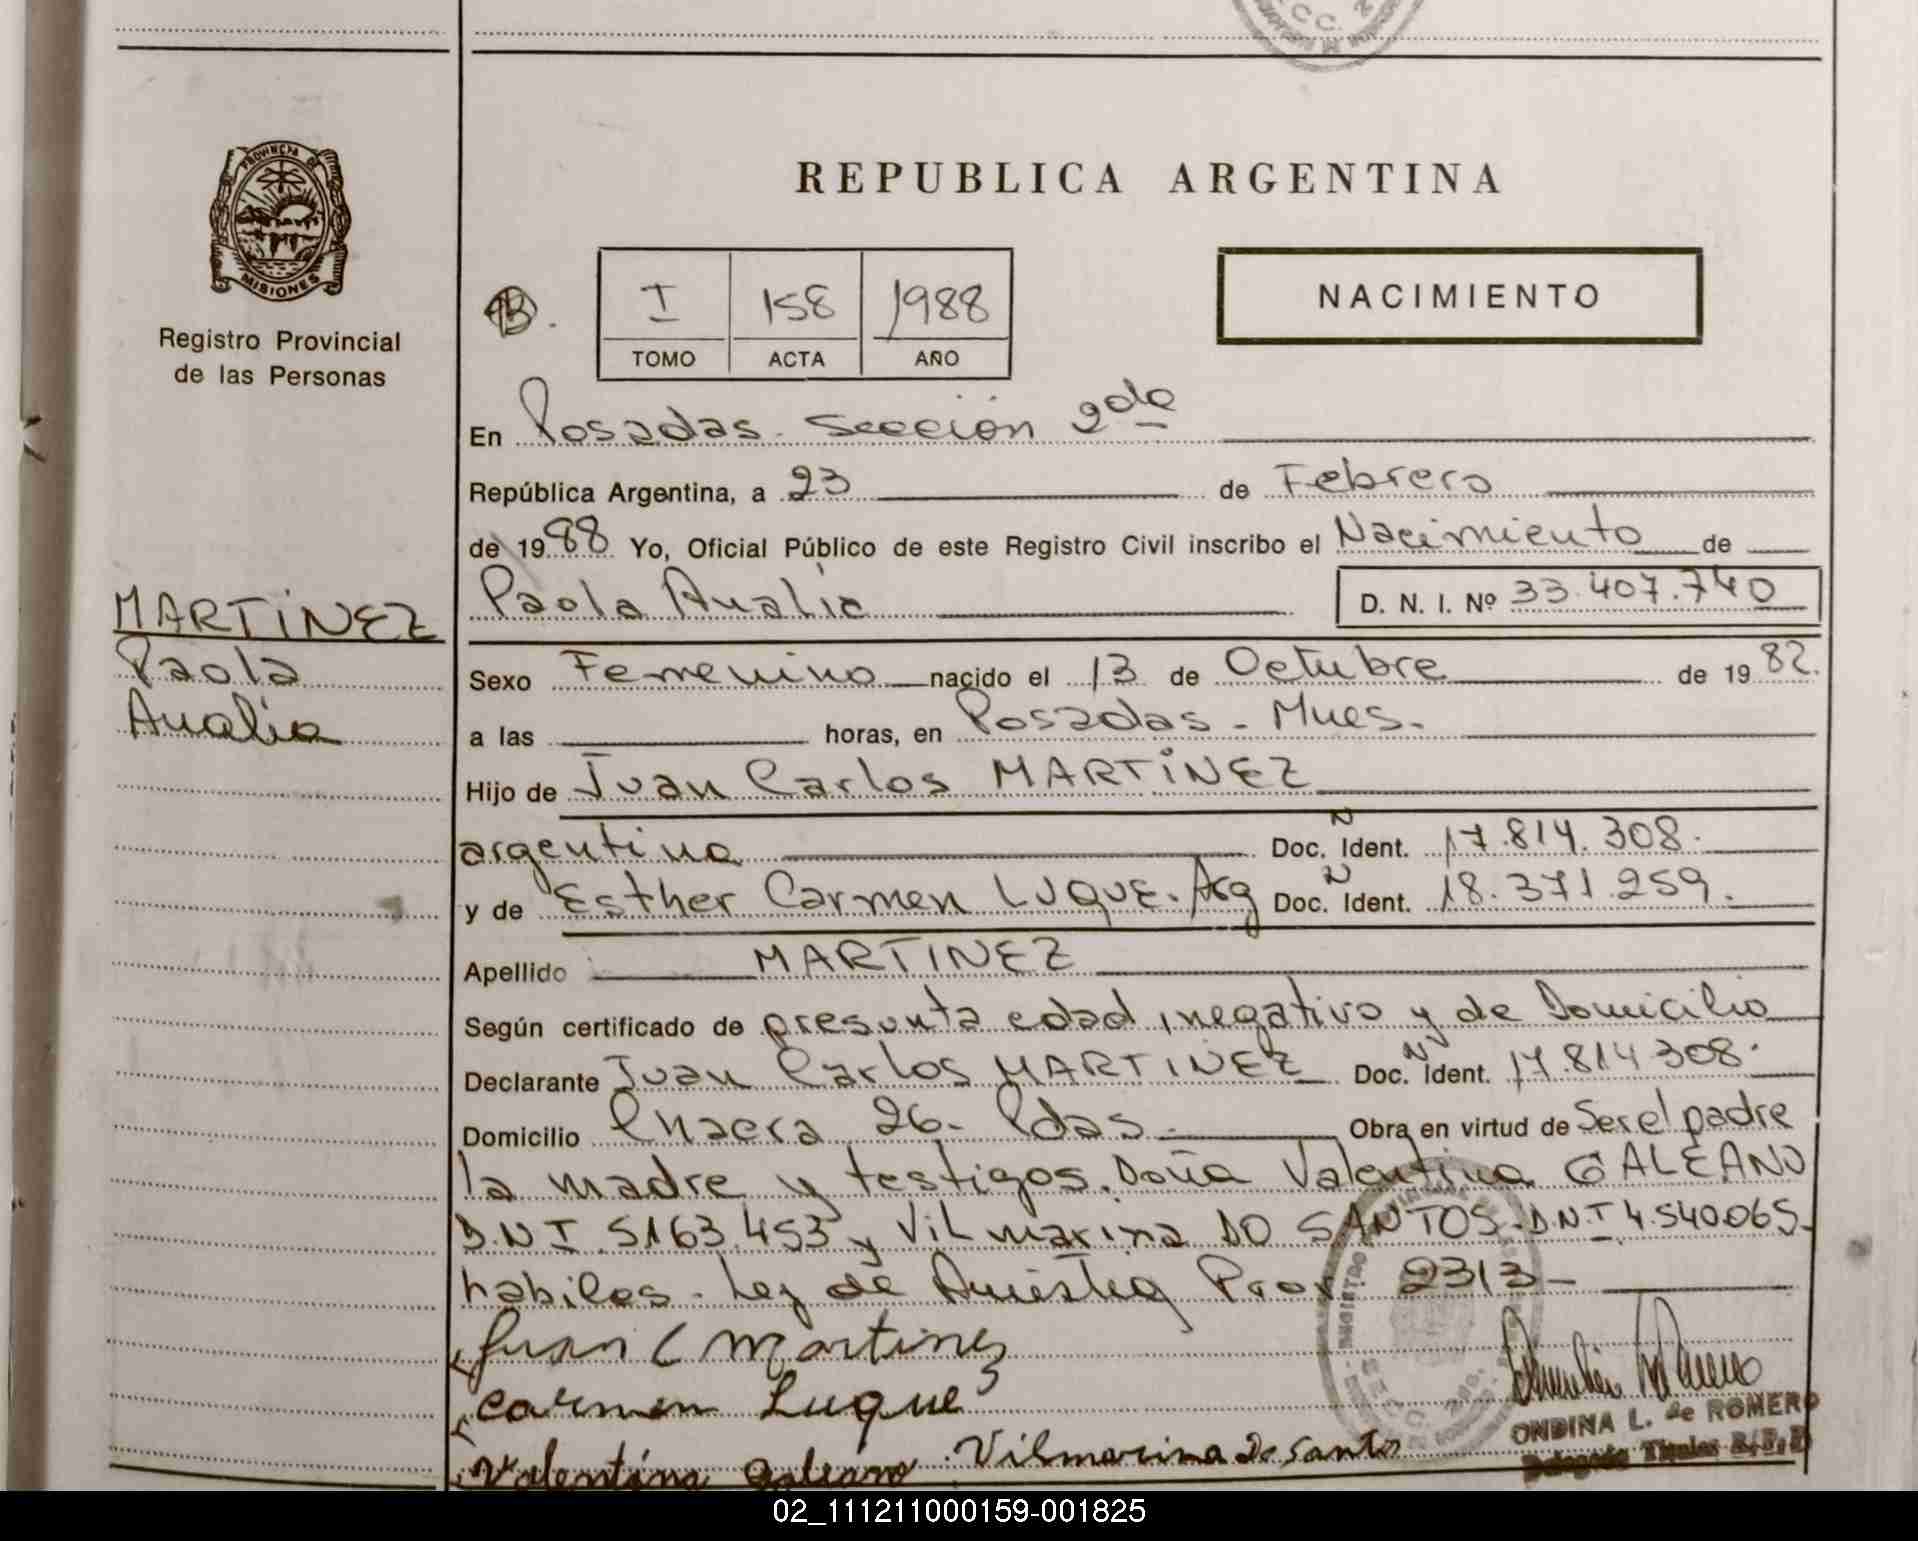 PROVINCIA DE
MISIONES
Registro Provincial
de las Personas
MARTINEZ
Paola
Analia
REPUBLICA ARGENTINA
I 158 1988
TOMO ACTA AÑO
NACIMIENTO
En Posadas. Sección 2da
República Argentina, a 23 de Febrero
de 1988 Yo, Oficial Público de este Registro Civil inscribo el Nacimiento de
Paola Analia D. N. I. Nº 33.407.740
Sexo Femenino nacido el 13 de Octubre de 1982.
a las horas, en Posadas - Mnes.
Hijo de Juan Carlos MARTINEZ
argentino Doc. N Ident. 17.814.308.
y de Esther Carmen LUQUE. Arg Doc. N Ident. 18.371.259.
Apellido MARTINEZ
Según certificado de presunta edad, negativo y de Domicilio
Declarante Juan Carlos MARTINEZ Doc. N Ident. 17.814308.
Domicilio Chacra 26. Pdas. Obra en virtud de Ser el padre
la madre y testigos. Doña Valentina GALEANO
D.N.I 5.163.453 y Vilmarina DO SANTOS. D.N.I 4.540.065-
habiles. Ley de Amistia Prov. 2313-
Juan C Martines
Carmen Luque
Valentina Galeano Vilmarina Do Santo
ONDINA L. de ROMERO
Delegada Titular
02_111211000159-001825